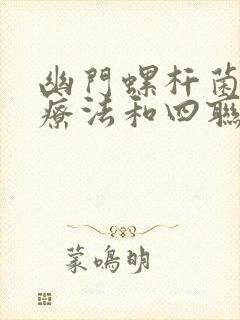 幽門螺杆菌
療法和四聯
蒙鳴明